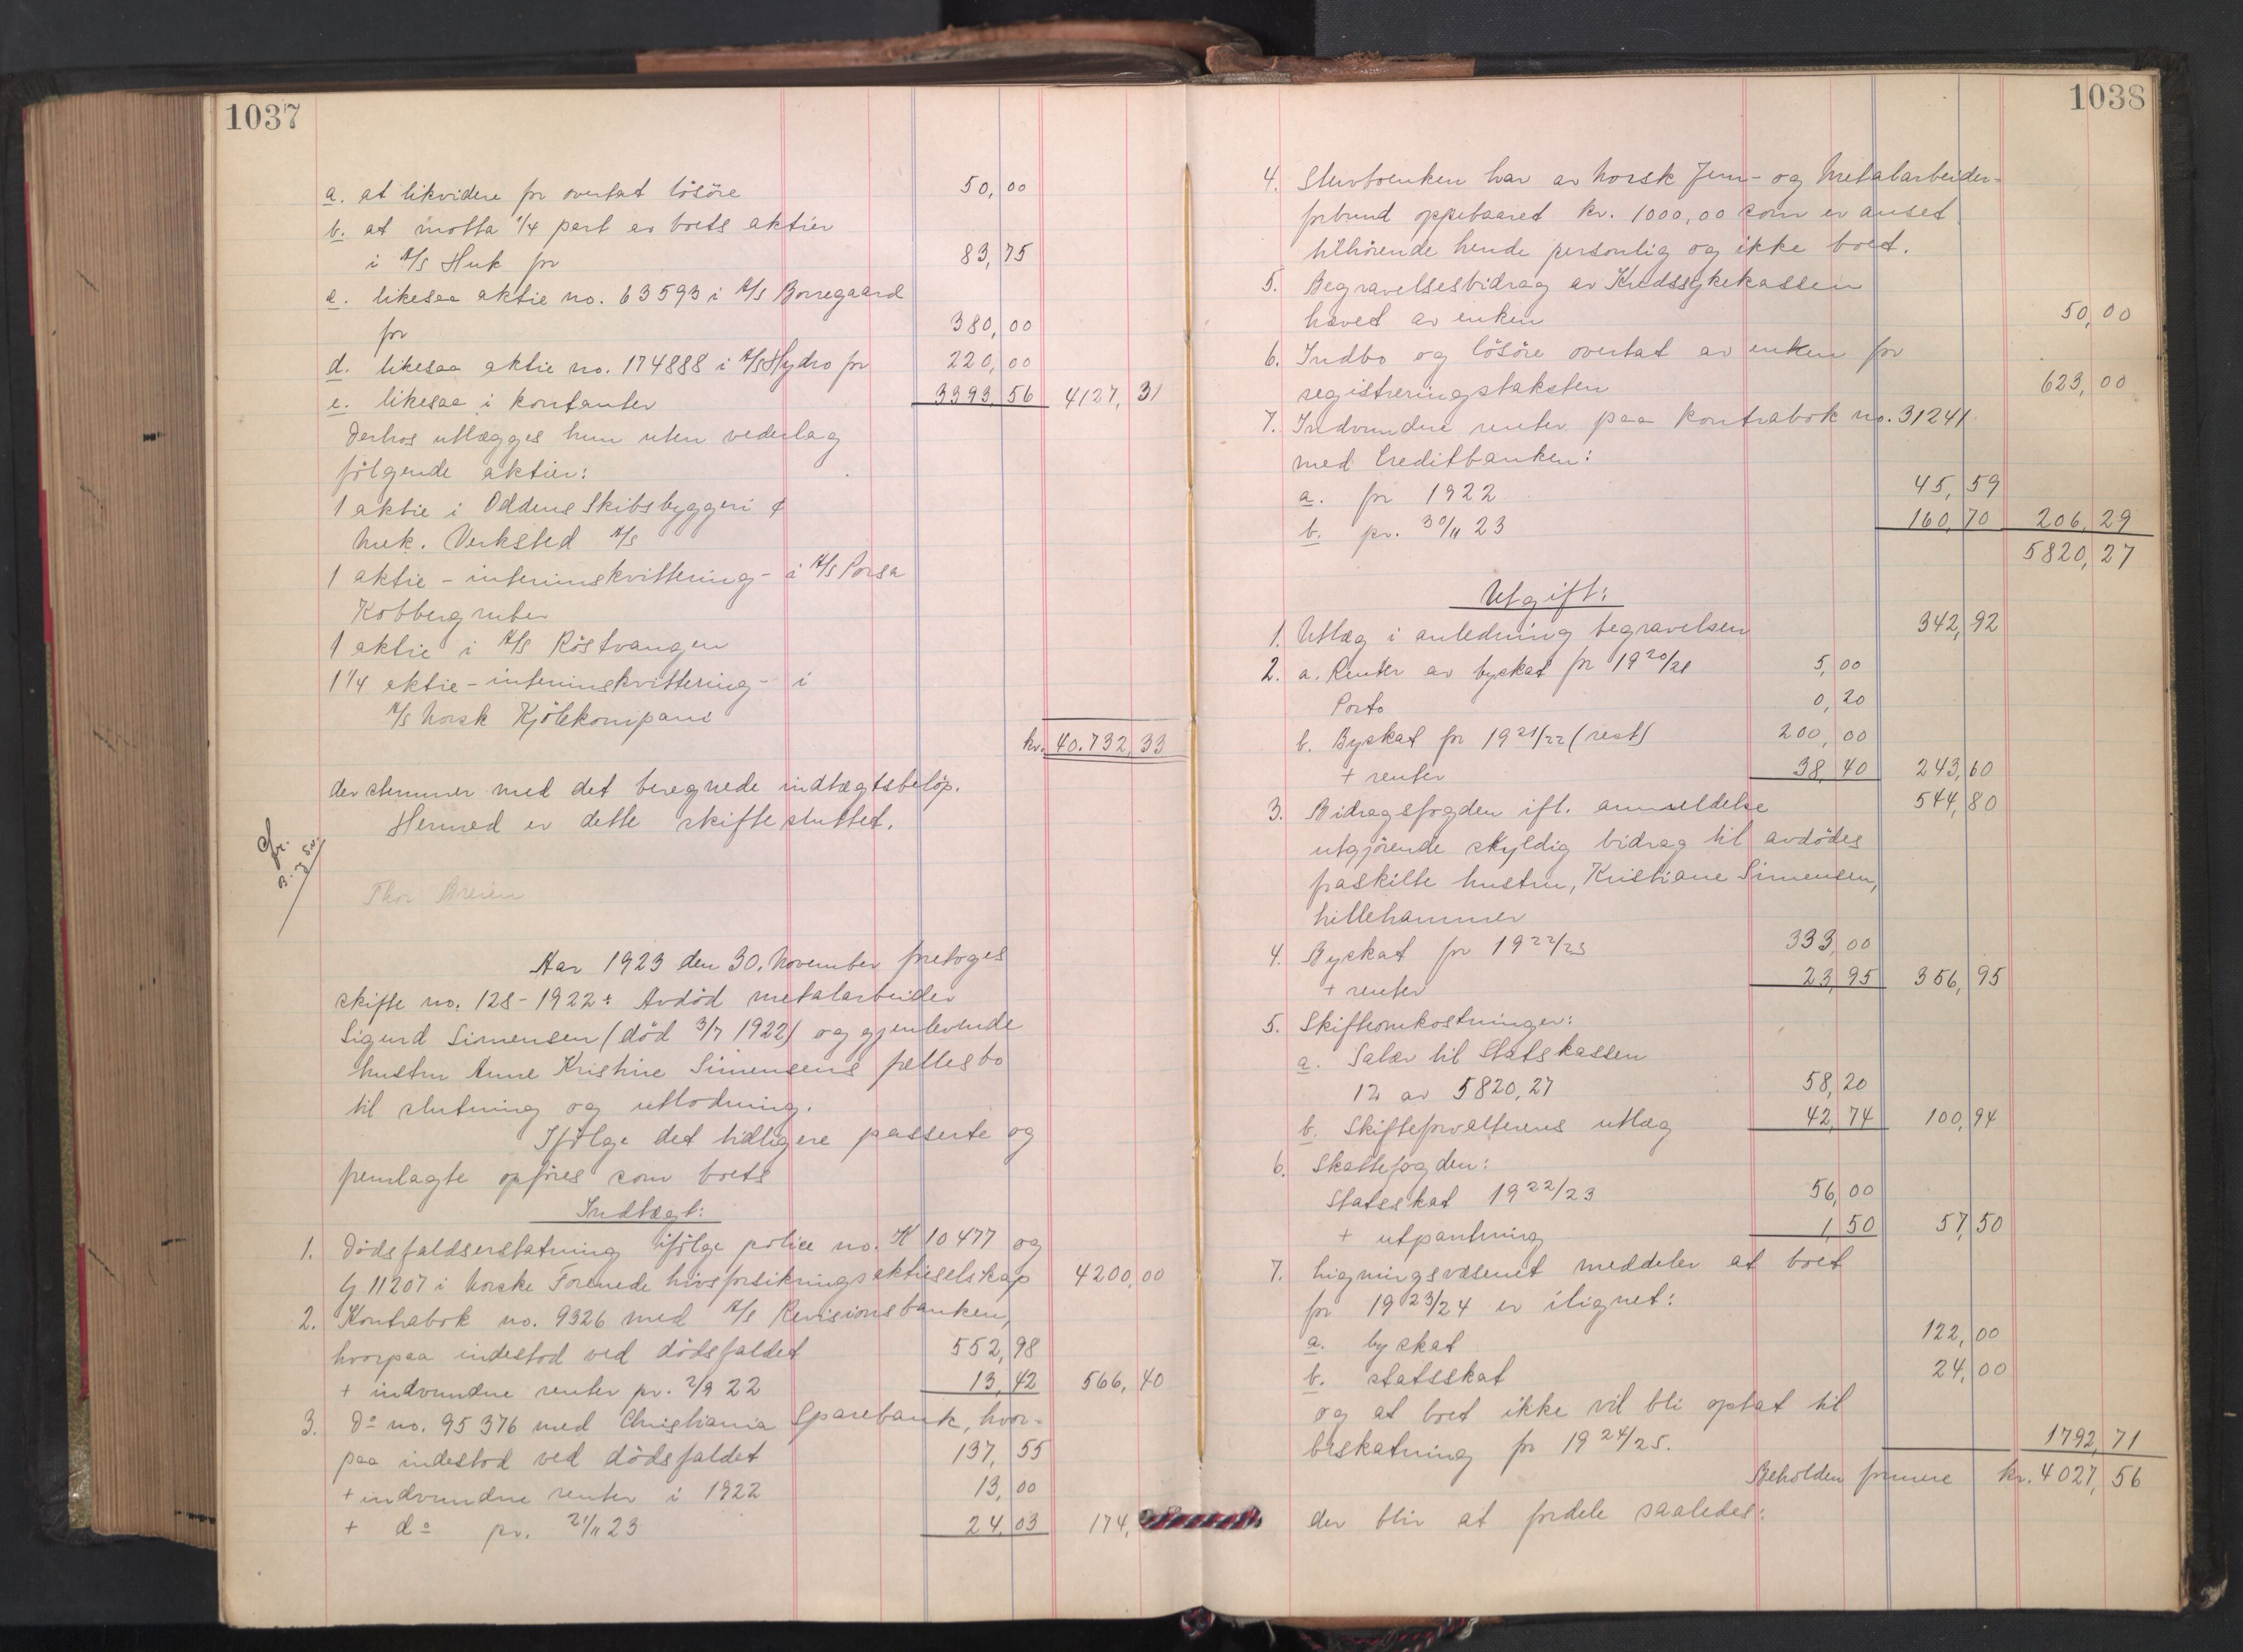 1037
a. at likvidere for overtat lösöre 50,00
b. at motta 1/4 part av boets aktier
i A/S Huk for 83,75
c. likesaa aktie no. 63593 i A/S Borregaard
for 380,00
d. likesaa aktie no. 174888 i A/S Hydro for 220,00
e. likesaa i kontanter 3393,56 4127,31
Derhos utlægges hun uten vederlag
følgende aktier:
1 aktie i Oddens Skibsbyggeri &
Mek. Verksted A/S
1 aktie - interimskvittering - i A/S Porsa
Kobbergruber
1 aktie i A/S Röstvangen
1 1/4 aktie - interimskvittering - i
A/S Norsk Kjölekompani
kr. 40.732,33
der stemmer med det beregnede indtægtsbeløp.
Hermed er dette skifte sluttet.
Thor Breien
Aar 1923 den 30. November foretoges
skifte no. 128-1922: Avdöd metalarbeider
Sigurd Simensen (död 3/7 1922) og gjenlevende
hustru Anne Kristine Simensens fællesbo
til slutning og utlodning.
Ifölge det tidligere passerte og
fremlagte opføres som boets
Indtægt:
1. Dödsfaldserstatning ifölge police no. H 10477 og
G 11207 i Norske Forenede Livsforsikringsaktieselskap 4200,00
2. Kontrabok no. 9326 med A/S Revisionsbanken,
hvorpaa indestod ved dödsfaldet 552,98
+ indvundne renter pr. 2/9 22 13,42 566,40
3. Do no. 95376 med Christiania Sparebank, hvor-
paa indestod ved dödsfaldet 137,55
+ indvundne renter i 1922 13,00
+ do pr. 21/11 23 24,03 174,
1038
4. Stervboenken har av Norsk Jern- og Metalarbeider-
forbund oppebaaret kr. 1000,00 som er anset
tilhörende hende personlig og ikke boet.
5. Begravelsesbidrag av Kredssykekassen
hævet av enken 50,00
6. Indbo og lösöre overtat av enken for
registreringstaksten 623,00
7. Indvundne renter paa kontrabok no. 31241
med Creditbanken:
a. for 1922 45,59
b. pr. 30/11 23 160,70 206,29
5820,27
Utgift:
1. Utlæg i anledning begravelsen 342,92
2. a. Renter av byskat for 1920/21 5,00
Porto 0,20
b. Byskat for 1921/22 (rest) 200,00
+ renter 38,40 243,60
3. Bidragsfogden ifl. anmeldelse 544,80
utgjörende skyldig bidrag til avdödes
fraskilte hustru, Kristiane Simensen,
Lillehammer
4. Byskat for 1922/23 333,00
+ renter 23,95 356,95
5. Skifteomkostninger:
a. Salær til Statskassen
1% av 5820,27 58,20
b. Skifteforvalterens utlæg 42,74 100,94
6. Skattefogden:
Statsskat 1922/23 56,00
+ utpantning 1,50 57,50
7. Ligningsvæsenet meddeler at boet
for 1923/24 er ilignet:
a. byskat 122,00
b. statsskat 24,00
og at boet ikke vil bli optat til
beskatning for 1924/25. 1792,71
Beholden formue kr. 4027,56
der blir at fordele saaledes: